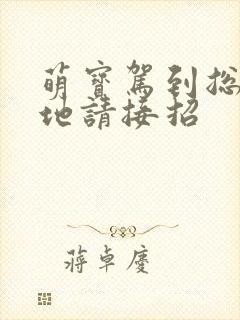 萌寶駕到总
地請接招
蔣卓慶